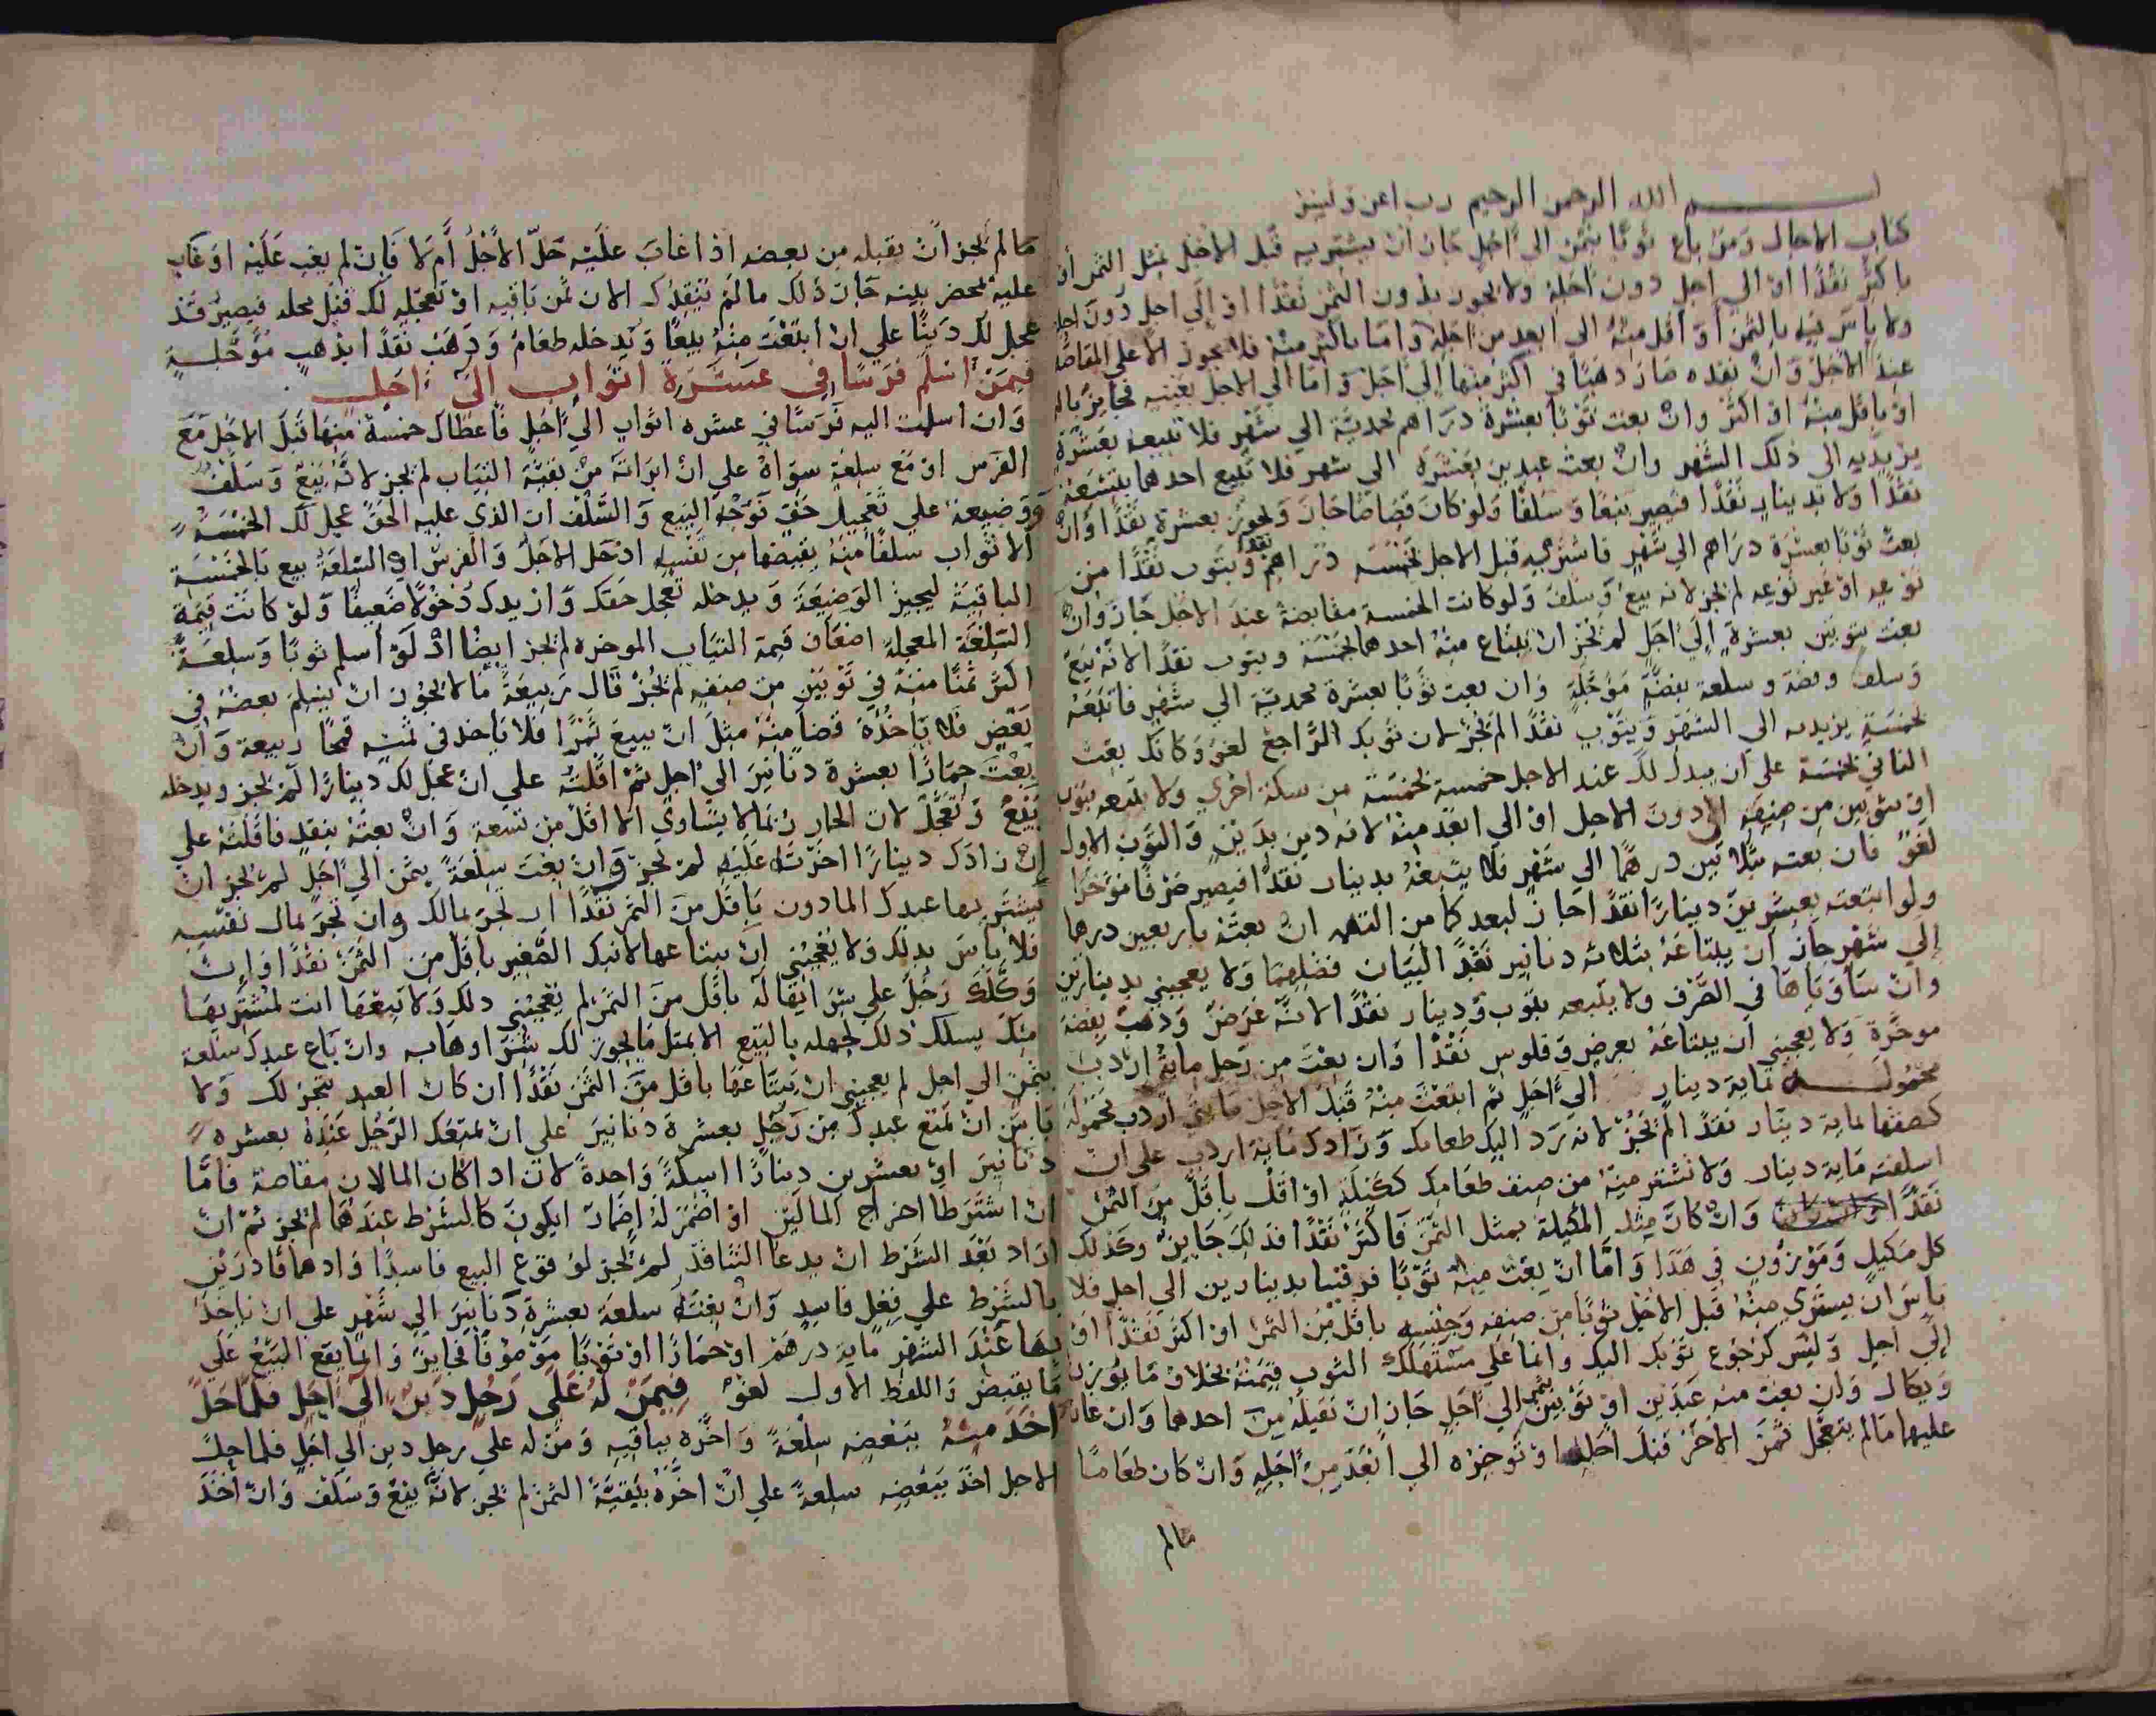 بسم الله الرحمن الرحيم رب اعن ويسر
كتاب الاجال ومن باع ثوبا بثمن الى اجل جاز ان يشتريه قبل الاجل بمثل الثمن او
باكثر نقدا او الى اجل دون اجله ولا يجوز بدون الثمن نقدا او إلى اجل دون اجله
ولا باس به بالثمن او اقل منه الى ابعد من اجله واما باكثر منه فلا يجوز الا على المقاصة
عند الاجل وان نقده صار ذهبا في اكثر منها إلى اجل واما الى الاجل بعينه فجايز بالثمن
او باقل منه او اكثر وان بعت ثوبا بعشرة دراهم محمدية الي شهر فلا تبيعه بعشرة
يزيدية الى ذلك الشهر وان بعت عبدين بعشرة الي شهر فلا تبيع احدهما بتسعة
نقدا ولا بدينار نقدا فيصير بيعا وسلفا ولو كان قصاصا جاز ويجوز بعشرة نقدا وان
بعت ثوبا بعشرة دراهم الي شهر فاشتريه قبل الاجل بخمسة دراهم نقدا وبثوب نقدا من
نوعه او غير نوعه لم يجز لانه بيع وسلف ولو كانت الخمسة مقابضة عند الاجل جاز وان
بعت ثوبين بعشرة إلى اجل لم يجز ان يبتاع منه احدهما بخمسة وبثوب نقدا لانه بيع
وسلف وفضة وسلعة بفضة مؤجلة وان بعت ثوبا بعشرة محمدية الي شهر فابتعته
بخمسة يزيدية الى الشهر وبثوب نقدا لم يجز لان ثوبك الراجع لغو وكانك بعت
الثاني بخمسة على ان يبدل لك عند الاجل خمسة بخمسة من سكة اخري ولا بتعه بثوب
او بثوبين من صنفه إلى دون الاجل او الي ابعد منه لانه دين بدين والثوب الاول
لغو فان بعته بثلاثين درهما الي شهر فلا يبتعه بدينار نقدا فيصير صرفا مؤخرا
ولو ابتعته بعشرين دينارا نقدا جاز لبعد كما من التهمة ان بعته باربعين درهما
إلي شهر جاز ان يبتاعه بثلاثة دنانير نقدا لبيان فضلهما ولا يعجبني بدينارين
وان ساوياها في الصرف ولا يبتعه بثوب ودينار نقدا لانه عرض وذهب بفضة
موخرة ولا يعجبني ان يبتاعه بعرض وفلوس نقدا وان بعت من رجل ماية اردب
محمولة بماية دينار الي اجل ثم ابتعت منه قبل الاجل مايتي اردب محمولة
كصفتها بماية دينار نقدا لم يجز لانه رد اليك طعامك وزادك ماية اردب على ان
اسلفته ماية دينار ولا تشتر منه من صنف طعامك ككيله او اقل باقل من الثمن
نقدا وان كان مثل المكيلة بمثل الثمن فاكثر نقدا فذلك جايز وكذلك
كل مكيل وموزون في هذا واما ان بعت منه ثوبا فرقبيا بدينارين الي اجل فلا
باس ان يشتري منه قبل الاجل ثوبا من صنفه وجنسه باقل من الثمن او اكثر نقدا او
إلي اجل وليس كرجوع ثوبك اليك وانما علي مستهلك الثوب قيمته بخلاف ما يوزن
ويكال وان بعت منه عبدين او ثوبين بثمن الي اجل جاز ان تقيله من احدهما وان غاب
عليها ما لم يتعجل ثمن الاخر قبل اجله او توخره الي ابعد من اجله وان كان طعاما
مالم
مالم يجز ان تقيله من بعضه اذا غاب عليه حل الاجل أم لا فان لم يغب عليه او غاب
عليه بمحضر بينة جاز ذلك ما لم ينقدك الان ثمن باقيه او تعجله لك قبل محله فيصير قد
عجل لك دينا علي ان ابتعت منه بيعا ويدخله طعام وذهب نقدا بذهب مؤجلة
فيمن اسلم فرسا في عشرة اثواب الى اجل
وان اسلمت اليه فرسا في عشره اثواب الي اجل فاعطاك خمسة منها قبل الاجل مع
الفرس او مع سلعة سواه على ان ابراته من بقية الثياب لم يجز لانه بيع وسلف
ووضيعة علي تعجيل حق توجه البيع والسلف ان الذي عليه الحق عجل لك الخمسة
الاثواب سلفا منه يقبضها من نفسه اذ حل الاجل والفرس او السلعة بيع بالخمسة
الباقية ليجيز الوضيعة ويدخله تعجل حقك وازيدك دخولا ضعيفا ولو كانت قيمة
السلعة المعجلة اضعاف قيمة الثياب الموخره لم يجز ايضا اذ لو أسلم ثوبا وسلعة
اكثر ثمنا منه في ثوبين من صنفه لم يجز قال ربيعة ما لا يجوز ان يسلم بعضه في
بعض فلا ياخذه قضا منه مثل ان يبيع تمرا فلا ياخذ في ثمنه قمحا ربيعة وان
بعت حمارا بعشرة دنانير الي اجل ثم اقلته علي ان عجل لك دينارا لم يجز ويدخله
بيع وتعجل لان الحمار ربما لا يساوي الا اقل من تسعة وان بعته بنقد فاقلته علي
إن زادك دينارا اخرته عليه لم يجز وان بعت سلعة بثمن الي اجل لم يجز ان
يشتريها عبدك الماذون باقل من الثمن نقدا ان تجر بمالك وان تجر بمال نفسه
فلا باس بذلك ولا يعجبني ان يبتاعها لابنك الصغير باقل من الثمن نقدا وإن
وكلك رجل علي شرايها له باقل من الثمن لم يعجبني ذلك ولا تبعها انت لمشتريها
منك يسلك ذلك لجهله بالبيع الا بمثل ما يجوز لك شراوها به وان باع عبدك سلعة
بثمن الي اجل لم يعجبني ان يبتاعها باقل من الثمن نقدا ان كان العبد يتجر لك ولا
باس ان تبتع عبدك من رجل بعشرة دنانير علي ان يبتعك الرجل عبده بعشره
دنانير او بعشرين دينارا سكة واحدة لان اذا كان المالان مقاصة فاما
ان اشترطا اخراج المالين او اضمر له اضمارا يكون كالشرط عندهما لم يجز ثم ان
اراد بعد الشرط ان يدعا التناقد لم يجز لوقوع البيع فاسدا
بالشرط علي فعل فاسد وان بعته سلعة بعشرة دنانير الي شهر علي ان ناخذ
بها عند الشهر ماية درهم او حمارا او ثوبا موصوفا فجايز وانما يقع البيع علي
ما يقبض واللفظ الاول لغو فيمن له على رجل دين الى اجل فلما حل
اخذ منه ببعضه سلعة واخره بباقيه ومن له علي رجل دين الي اجل فلما حل
الاجل اخذ ببعضه سلعة علي ان اخره ببقية الثمن لم يجز لانه بيع وسلف وان اخذ